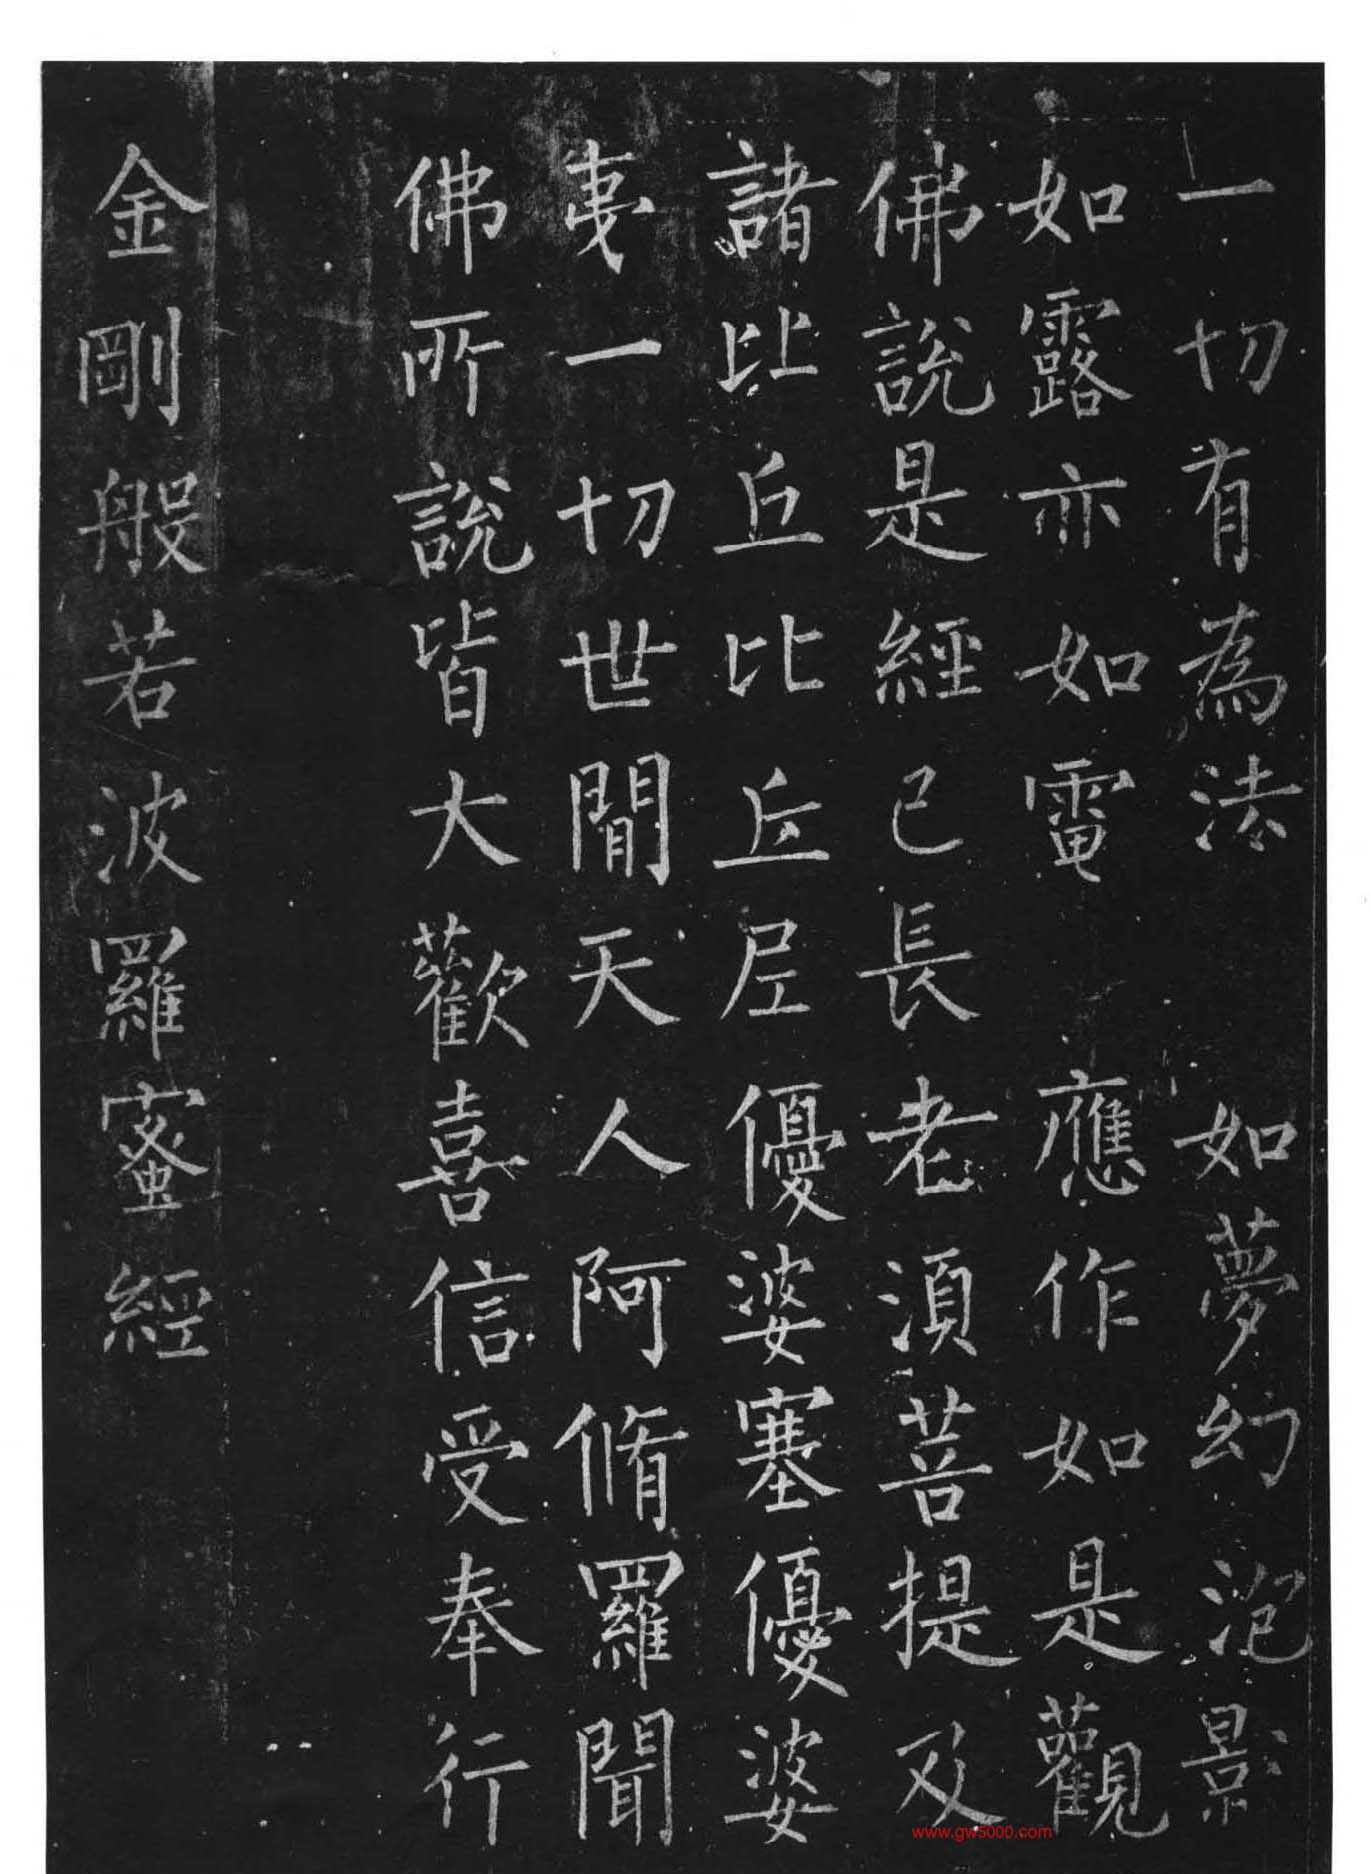 一切有為法　如夢幻泡影
如露亦如電　應作如是觀
佛說是經已長老湏菩提及
諸比丘比丘尼優婆塞優婆
夷一切世間天人阿脩羅聞
佛所說皆大歡喜信受奉行
金剛般若波羅蜜經
www.gw5000.com